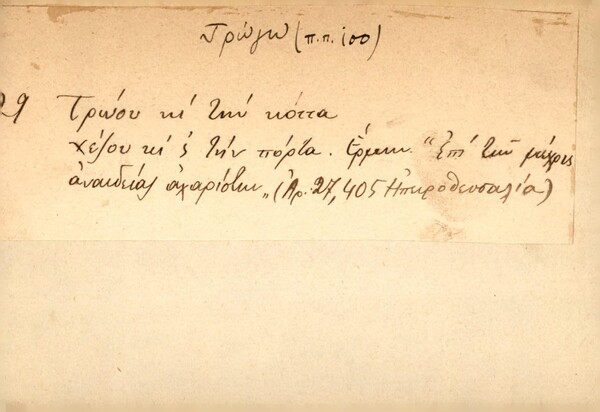 Τρώγω (π.π. 100)
29 Τρώου κι την κόττα
χέζου κι ς την πόρτα. Ερμην. "Επί των μέχρις
αναιδείας αχαρίστων" (Αρ. 27, 405 Ηπειροθεσσαλία)